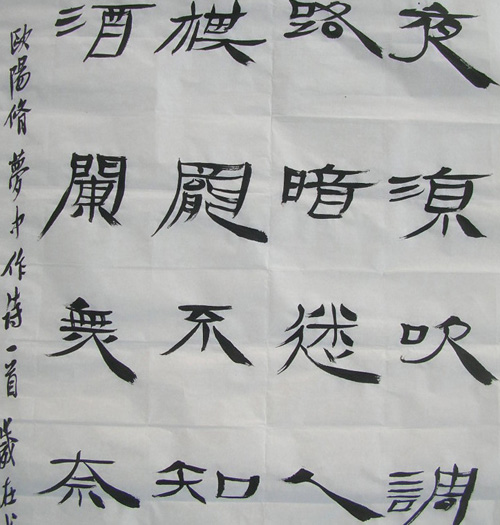 夜涼吹調
路暗迷人
棋罷不知
酒闌無奈
歐陽脩夢中作诗一首 歲在